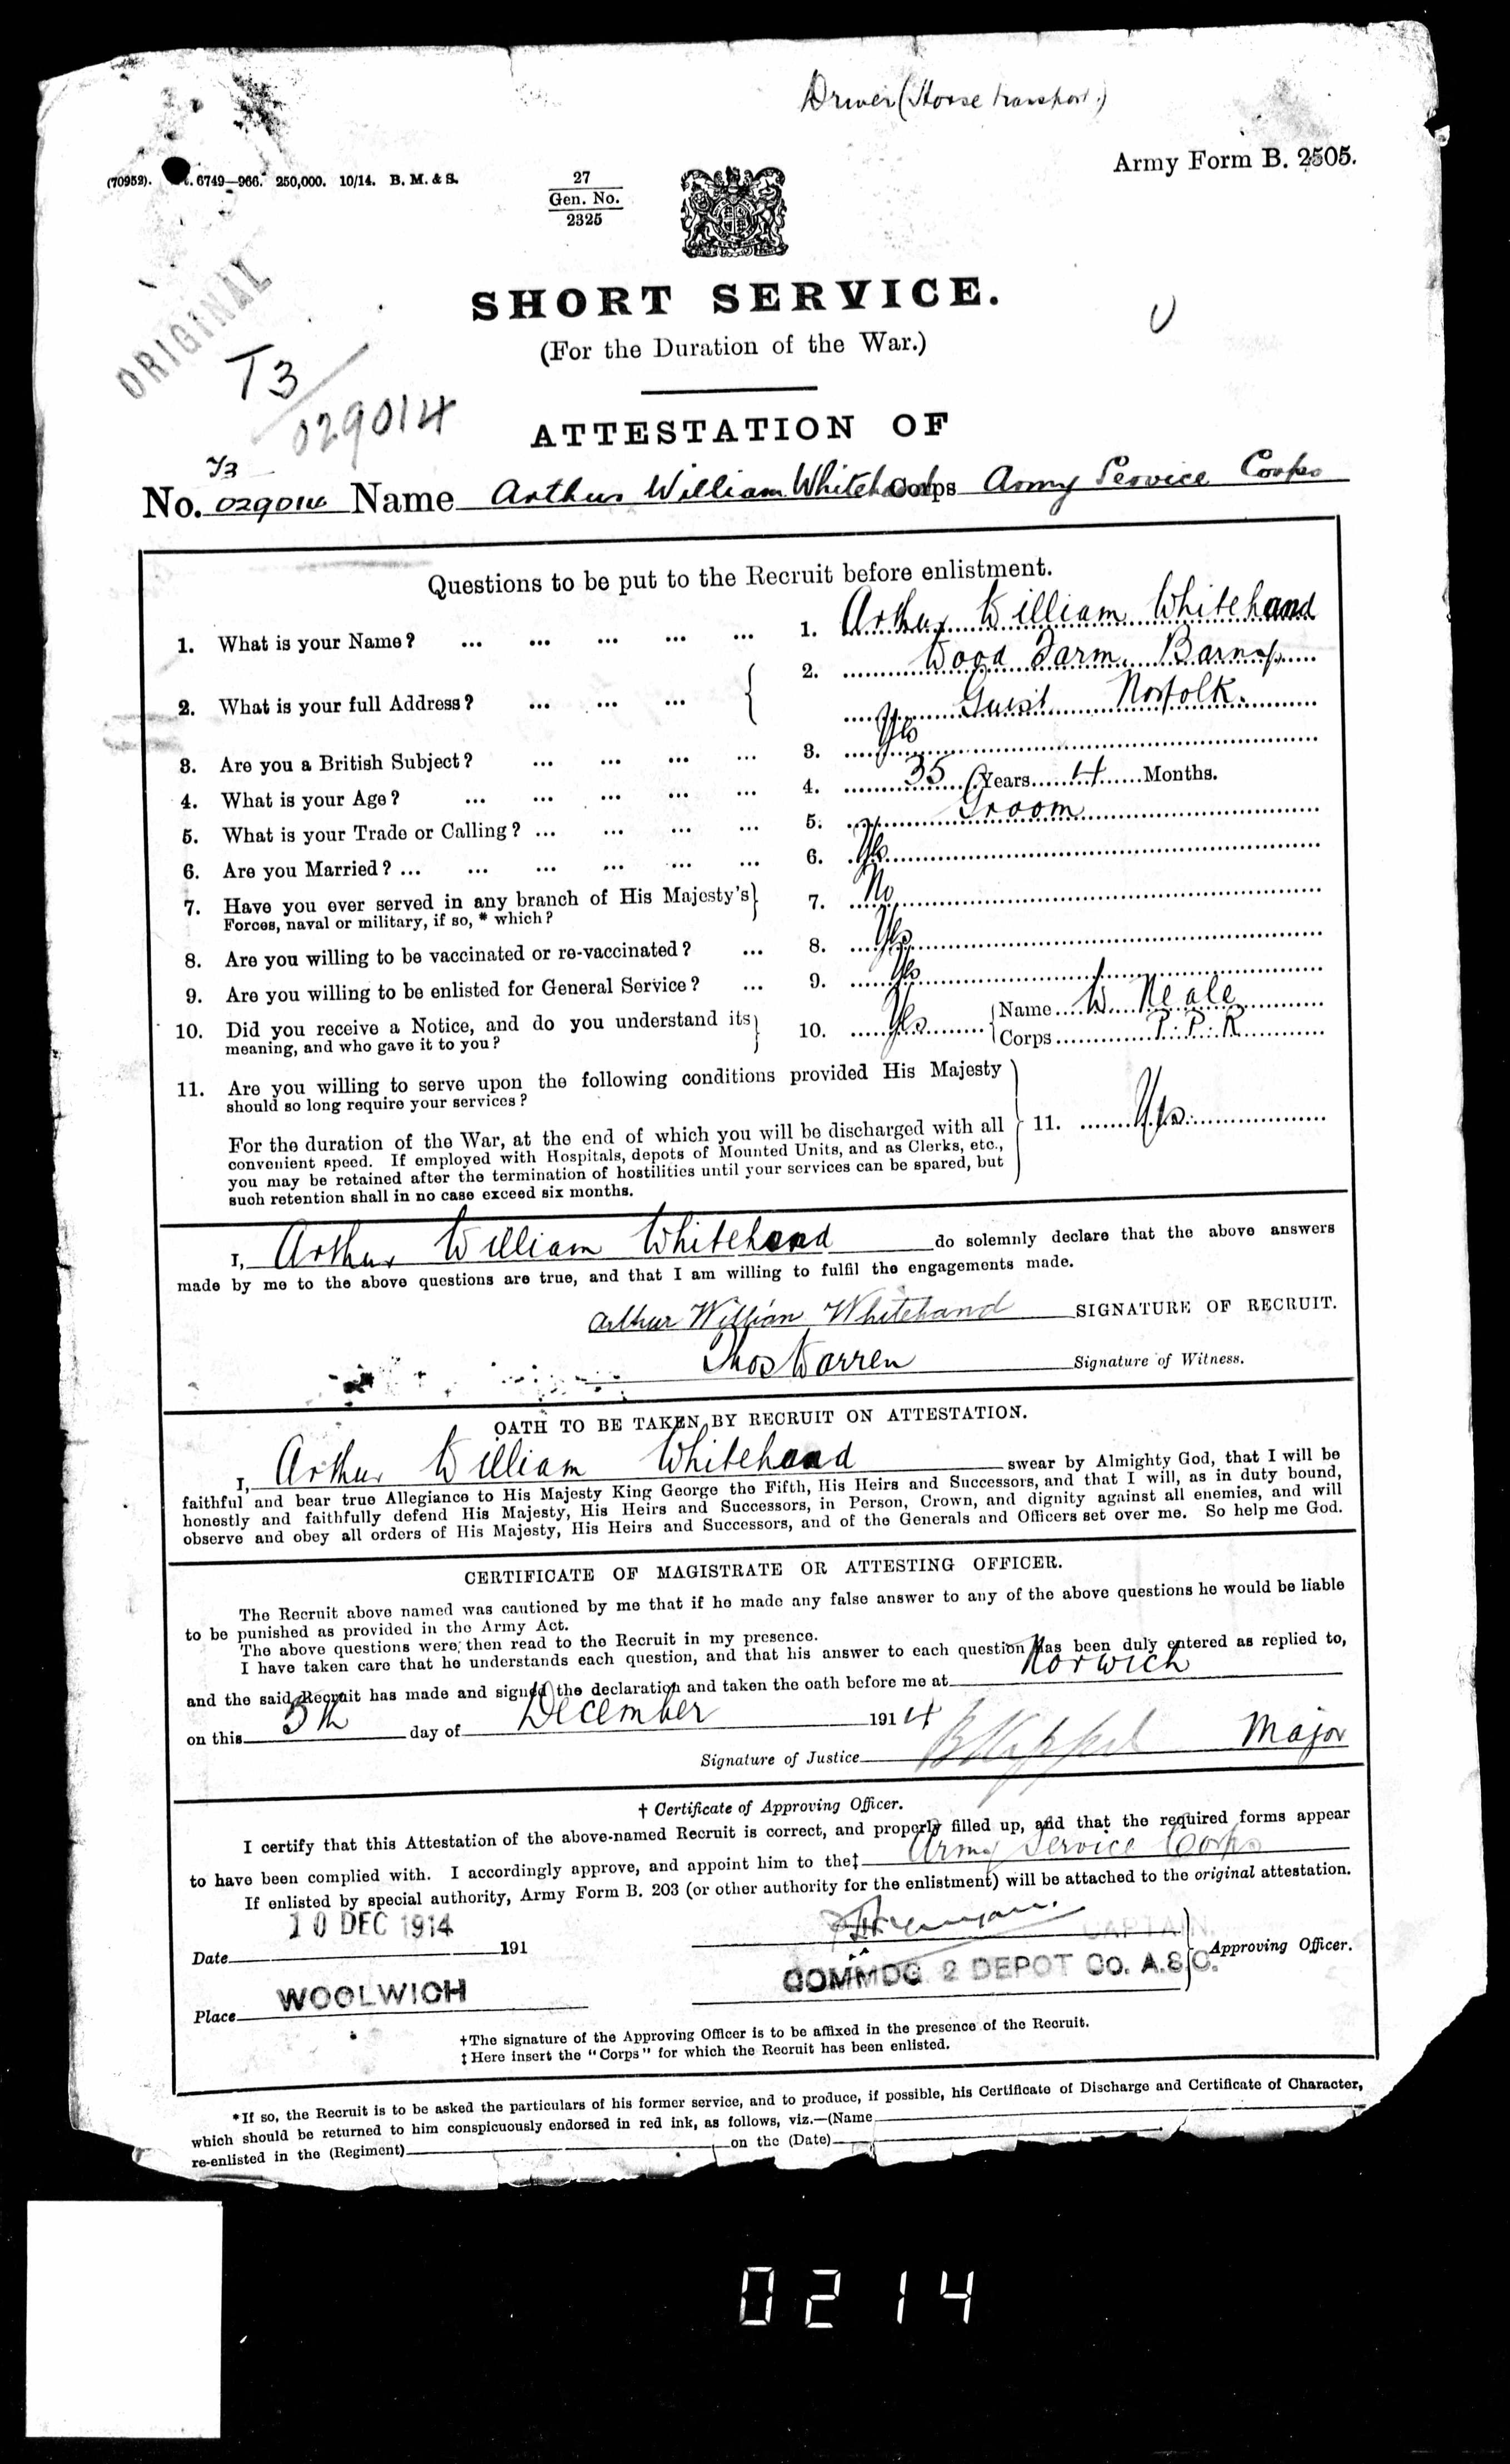 Driver (Horse transport.)
Army Form B. 2505.
(70952). 6749—966. 250,000. 10/14. B. M. & S.
27
Gen. No.
2325
ORIGINAL
SHORT SERVICE.
(For the Duration of the War.)
T3
029014
ATTESTATION OF
T/3
No. 029014 Name Arthur William Whitehand Corps Army Service Corps
Questions to be put to the Recruit before enlistment.
1. What is your Name? ... ... ... ... ... 1. Arthur William Whitehand
2. What is your full Address? ... ... ... { 2. Wood Farm, Barn
Guist Norfolk.
3. Are you a British Subject? ... ... ... ... 3. Yes
4. What is your Age? ... ... ... ... ... 4. 35 Years 4 Months.
5. What is your Trade or Calling? ... ... ... ... 5. Groom
6. Are you Married? ... ... ... ... ... 6. Yes
7. Have you ever served in any branch of His Majesty's } 7. No
Forces, naval or military, if so, * which?
8. Are you willing to be vaccinated or re-vaccinated? ... 8. Yes
9. Are you willing to be enlisted for General Service? ... 9. Yes
10. Did you receive a Notice, and do you understand its } 10. Yes { Name W. Neale
meaning, and who gave it to you? Corps P.P.R
11. Are you willing to serve upon the following conditions provided His Majesty
should so long require your services?
For the duration of the War, at the end of which you will be discharged with all } 11. Yes
convenient speed. If employed with Hospitals, depots of Mounted Units, and as Clerks, etc.,
you may be retained after the termination of hostilities until your services can be spared, but
such retention shall in no case exceed six months.
I, Arthur William Whitehand do solemnly declare that the above answers
made by me to the above questions are true, and that I am willing to fulfil the engagements made.
Arthur William Whitehand SIGNATURE OF RECRUIT.
Thos Warren Signature of Witness.
OATH TO BE TAKEN BY RECRUIT ON ATTESTATION.
I, Arthur William Whitehand swear by Almighty God, that I will be
faithful and bear true Allegiance to His Majesty King George the Fifth, His Heirs and Successors, and that I will, as in duty bound,
honestly and faithfully defend His Majesty, His Heirs and Successors, in Person, Crown, and dignity against all enemies, and will
observe and obey all orders of His Majesty, His Heirs and Successors, and of the Generals and Officers set over me. So help me God.
CERTIFICATE OF MAGISTRATE OR ATTESTING OFFICER.
The Recruit above named was cautioned by me that if he made any false answer to any of the above questions he would be liable
to be punished as provided in the Army Act.
The above questions were then read to the Recruit in my presence.
I have taken care that he understands each question, and that his answer to each question has been duly entered as replied to,
and the said Recruit has made and signed the declaration and taken the oath before me at Norwich
on this 5th day of December 1914
Signature of Justice Major
† Certificate of Approving Officer.
I certify that this Attestation of the above-named Recruit is correct, and properly filled up, and that the required forms appear
to have been complied with. I accordingly approve, and appoint him to the‡ Army Service Corps
If enlisted by special authority, Army Form B. 203 (or other authority for the enlistment) will be attached to the original attestation.
10 DEC 1914
CAPTAIN.
Date 191
Approving Officer.
COMMDG 2 DEPOT Co. A.S.C.
Place WOOLWICH
†The signature of the Approving Officer is to be affixed in the presence of the Recruit.
‡ Here insert the "Corps" for which the Recruit has been enlisted.
*If so, the Recruit is to be asked the particulars of his former service, and to produce, if possible, his Certificate of Discharge and Certificate of Character,
which should be returned to him conspicuously endorsed in red ink, as follows, viz.—(Name
re-enlisted in the (Regiment) on the (Date)
0214